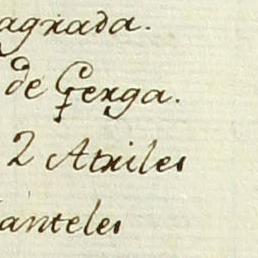 agrada.
de Gerga.
2 Atriles
anteles